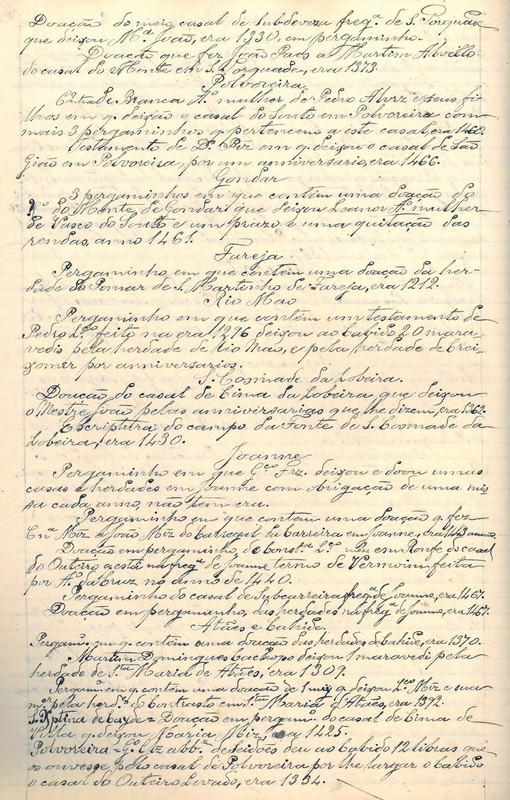 Doação do meio casal de Subdeveza fregª de S. Torquade
que deixou Mª João, era 1330, em pergaminho.
Doação que fez João Paes a Martim Alvello
do casal do Monte em S. Torquade, era 1373.
Polvoreira
e Branca Aº mulher de Pedro Alvrz e seus fi-
lhos em q. deixão o casal do Souto em Polvoreira com
mais 3 pergaminhos q. pertencem a este casal, era 1460.
Testamento de Pez em q. deixou o casal de São
Gião em Polvoreira, por um anniversario, era 1466.
Gondar
3 pergaminhos em que contém uma doação do
do Monte de Gondar, que deixou Leanor Aº mulher
de Vasco do Souto e um prazo e uma quitação das
rendas, anno 1461.
Fareja
Pergaminho, em que contém uma doação da her-
dade do Pomar de S. Martinho de Fareja, era 1212.
Rio Mao
Pergaminho em que contém um testamento de
Pedro Lço feito na era 1296 deixou ao babido 20 mara-
vedis pela herdade de Rio Mao, e pela herdade de Crei-
xomer por anniversarios.
S. Cosmade da Lobeira.
Doação do casal de Cima da Lobeira, que deixou
o Mestre João pelas anniversarios que lhe dizem, era
Escriptura do campo da Fonte de S. Cosmade da
Lobeira, era 1430.
Joanne
Pergaminho em que Gço Frz. deixou e doou umas
casas e herdades em Joanne com obrigação de uma mis-
sa cada anno, não tem era.
Pergaminho em que contem uma doação q. fez
Miz a João Miz do da Carreira em Joanne, era
Doação em pergaminho, de em Ronfe do casal
do Outeiro q. está na fregª de Joanne termo de Vermoim feita
por Aº da Cruz no anno de 1440.
Pergaminho do casal de Subcarreira fregª de Joanne, era 1467.
Doação em pergaminho, das herdades na fregª de Joanne, era 1467.
Atães e Cahide
Pergamº em q. contém uma doação das herdades de Cahide, era 1370.
Martim Domingues deixou 1 maravedi pela
herdade de Sta Maria de Atães, era 1309.
Pergamº em q. contém uma doação de 1 q. deixou Lço Miz e sua
mer pela herdade do Contrasto em Sta Maria d'Atães, era 1392.
S. Xptina de Cayde = Doação em pergamº do casal de Cima de
Villa q. deixou Maria Miz, era 1425.
Polvoreira = Gço Viz abbe de Seidões deu ao Cabido 12 libras que
os ouvesse pelo casal de Polvoreira por lhe largar o Cabido
o casal do Outeiro Levado, era 1334.